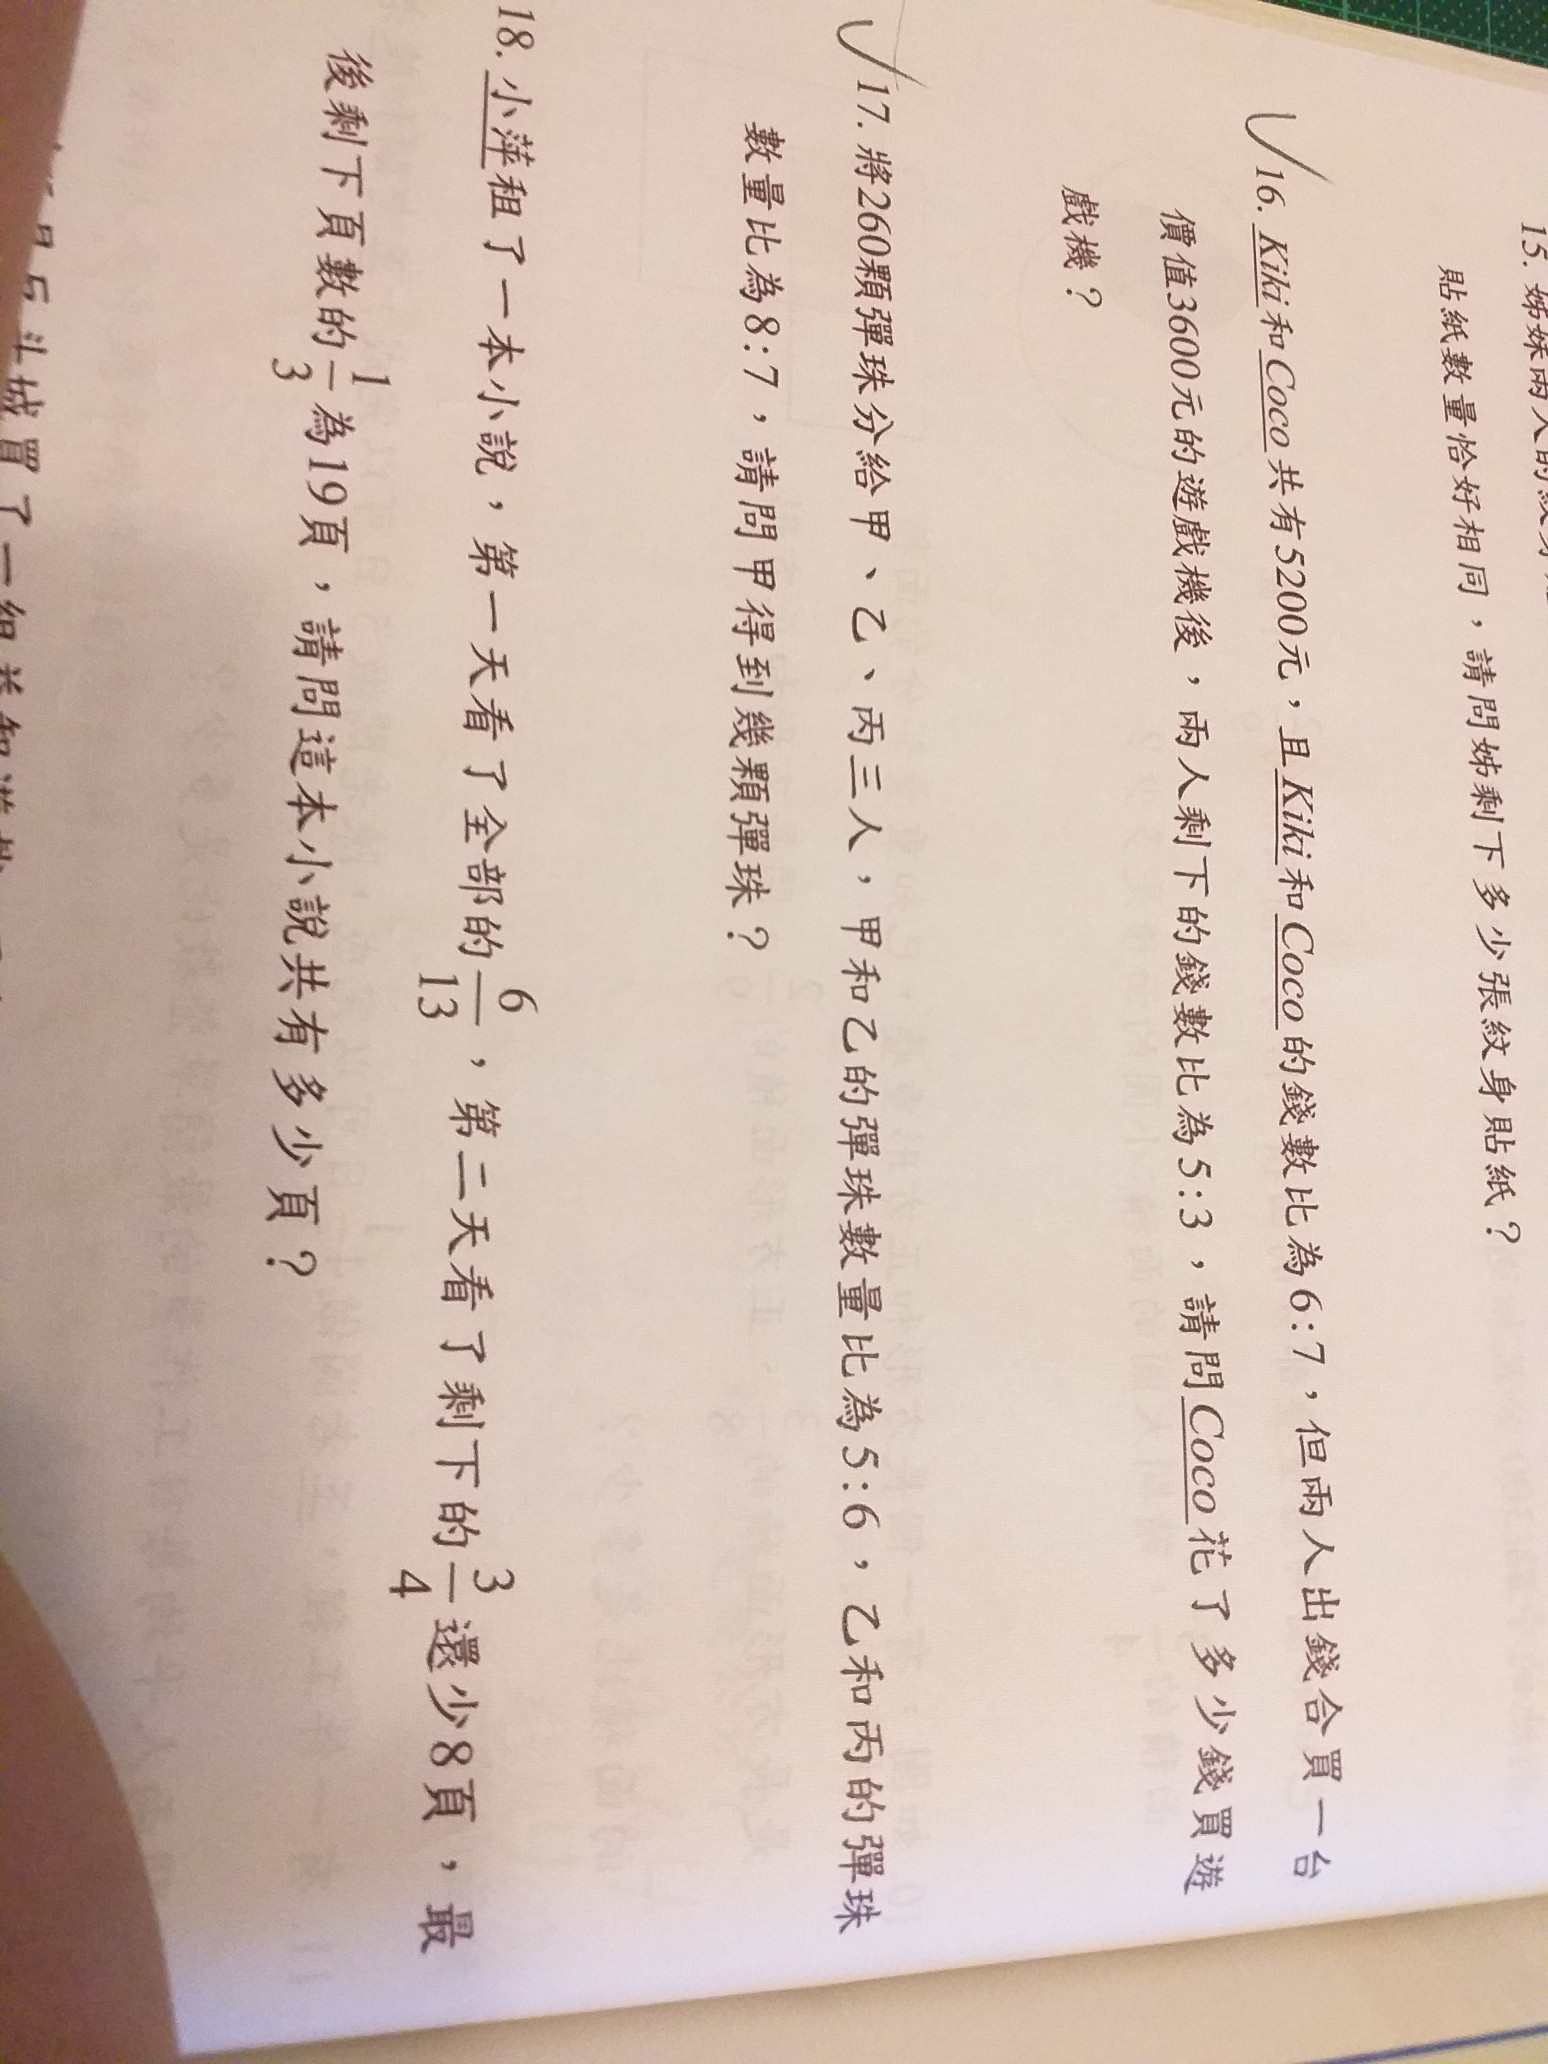 15. 姊妹兩人的紋身
貼紙數量恰好相同，請問姊剩下多少張紋身貼紙？
16. Kiki和Coco共有5200元，且Kiki和Coco的錢數比為6:7，但兩人出錢合買一台
價值3600元的遊戲機後，兩人剩下的錢數比為5:3，請問Coco花了多少錢買遊
戲機？
17. 將260顆彈珠分給甲、乙、丙三人，甲和乙的彈珠數量比為5:6，乙和丙的彈珠
數量比為8:7，請問甲得到幾顆彈珠？
18. 小萍租了一本小說，第一天看了全部的6/13，第二天看了剩下的3/4還少8頁，最
後剩下頁數的1/3為19頁，請問這本小說共有多少頁？
城買了一組益智遊